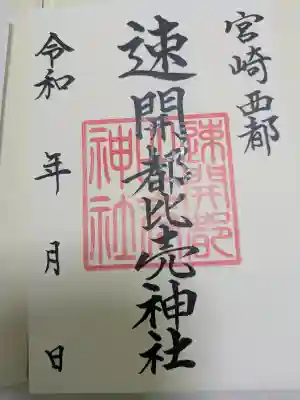 宮崎西都
速開都比売神社
速開都
神社
令和 年 月 日